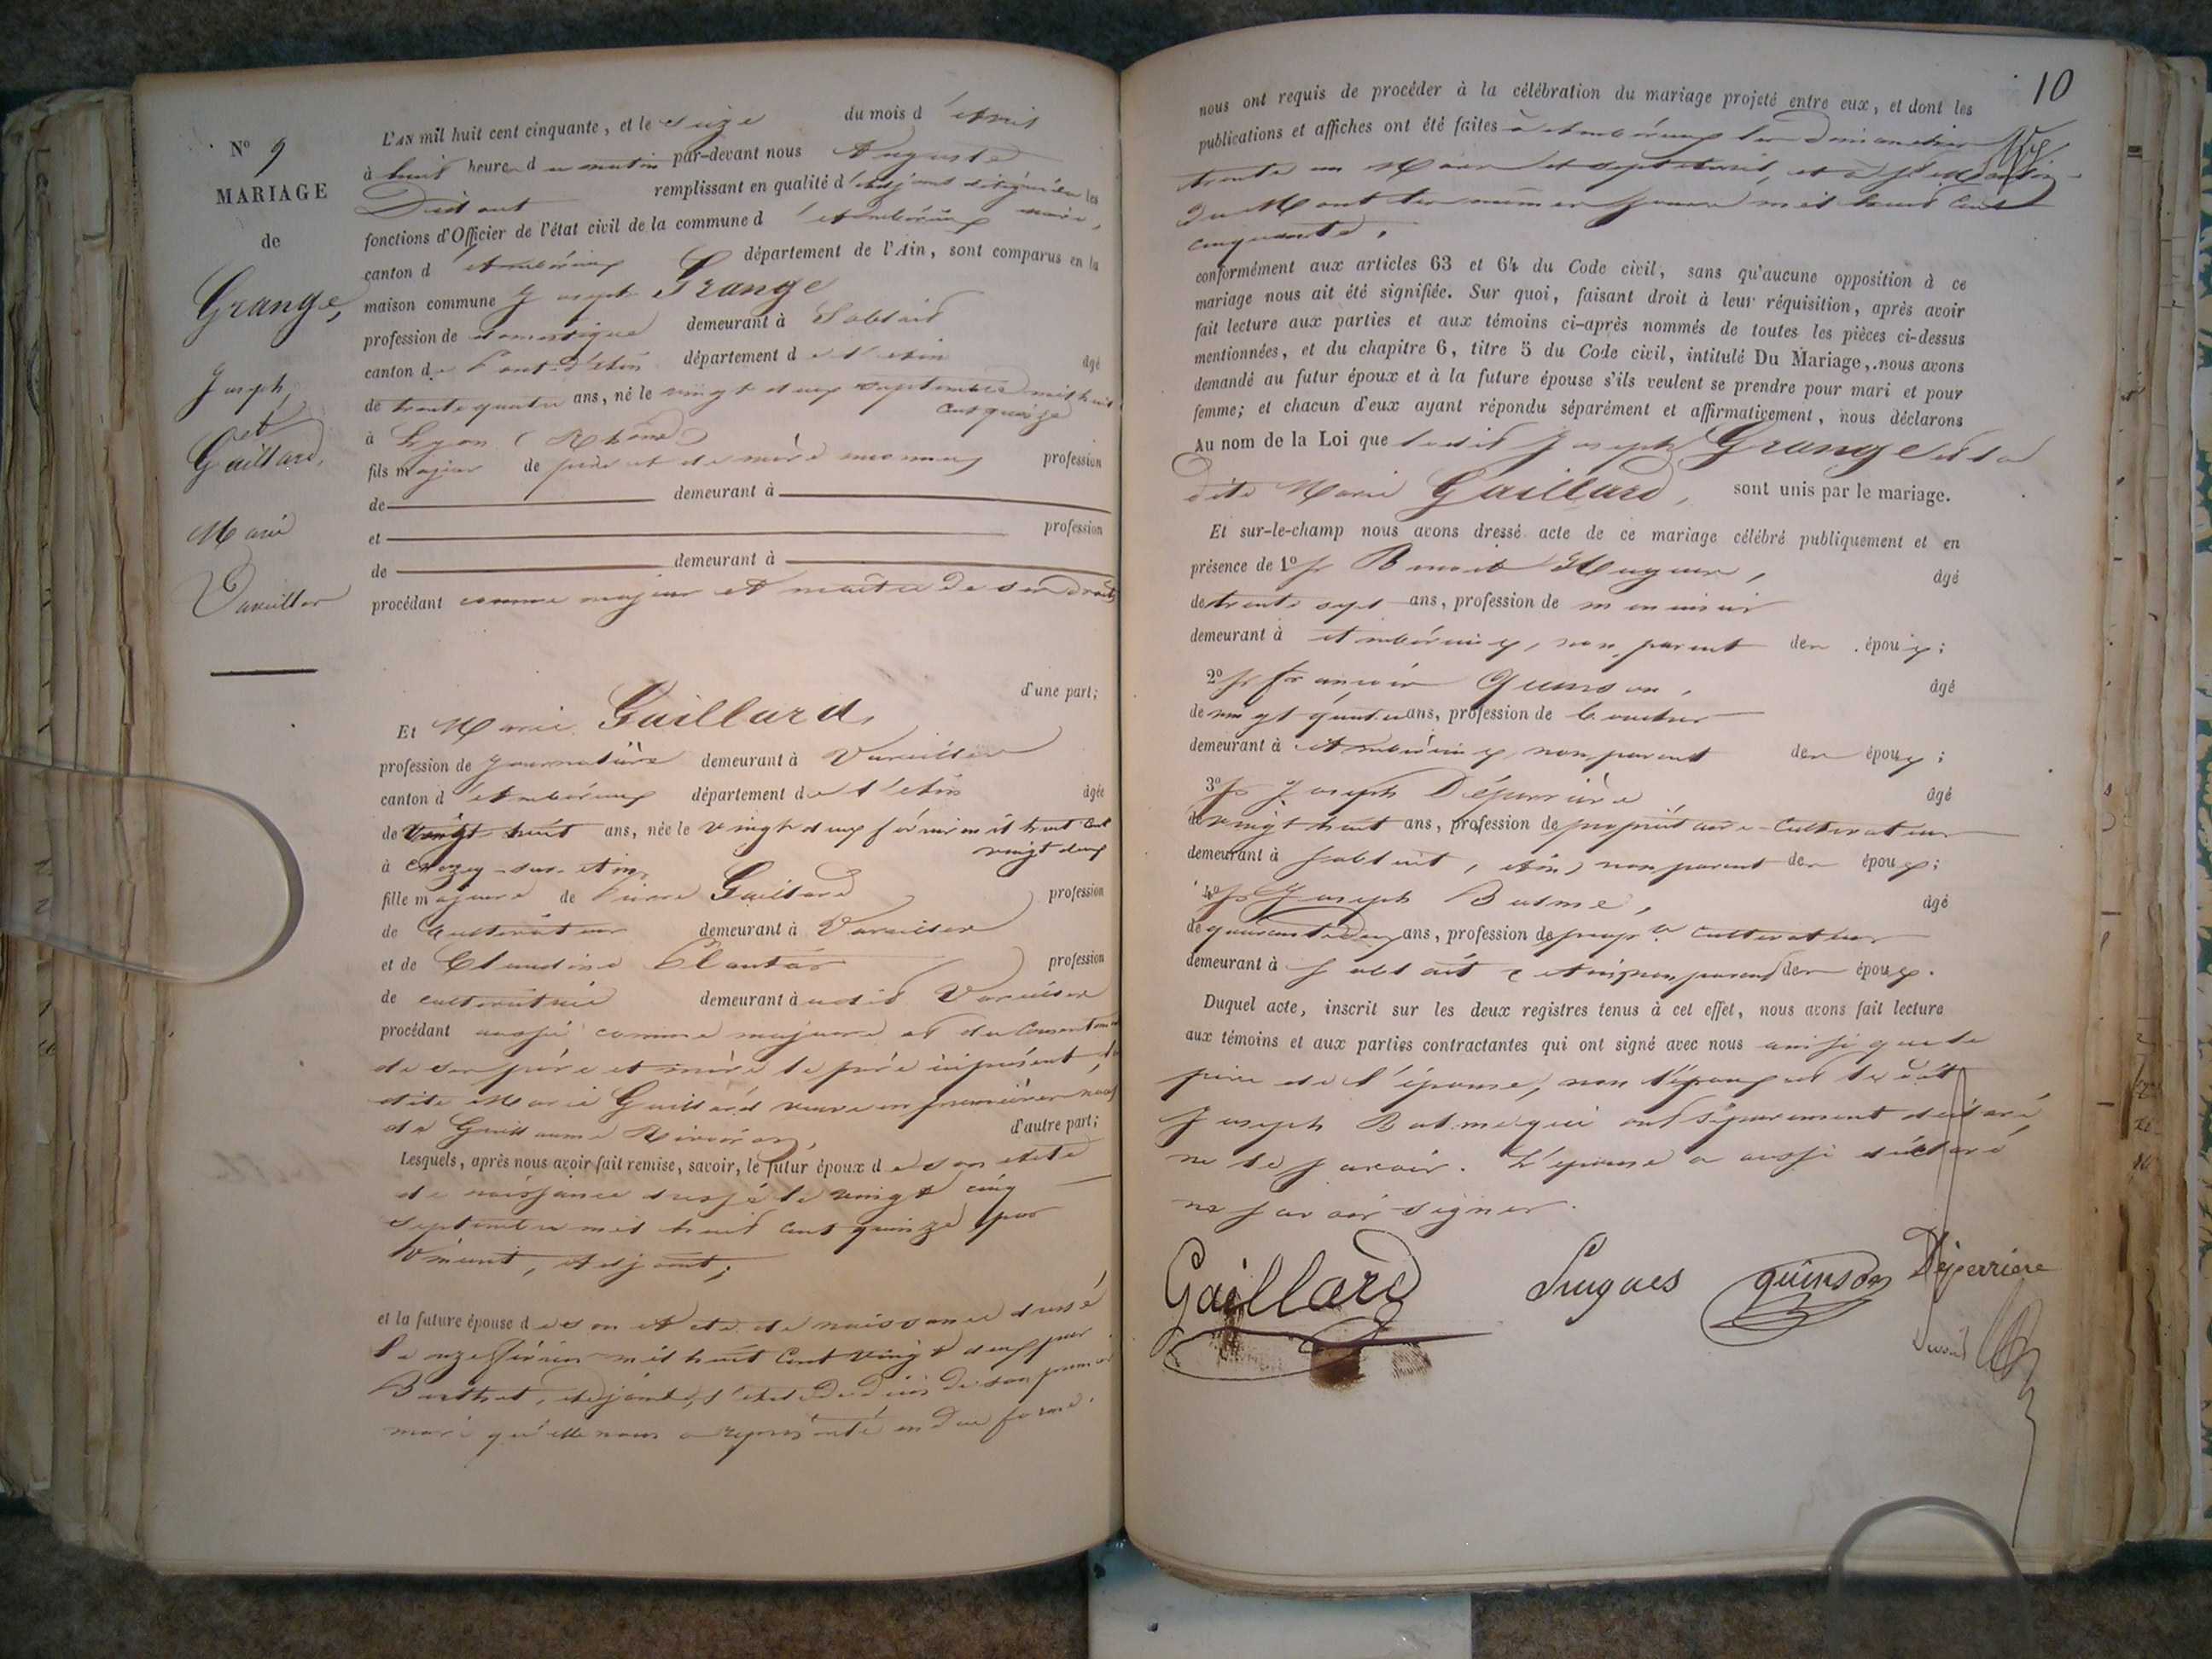 N° 9
MARIAGE
de
Grange,
Joseph,
et
Gaillard,
Marie
Vareilles
L'AN mil huit cent cinquante, et le seize du mois d'Avril
à huit heures du matin par-devant nous Auguste
remplissant en qualité d'adjoint délégué les
fonctions d'Officier de l'état civil de la commune d'Ambérieux
canton d'Ambérieux département de l'Ain, sont comparus en la
maison commune Joseph Grange
profession de domestique demeurant à Sablait
canton de Pont-d'Ain département de l'Ain âgé
de trente quatre ans, né le vingt deux septembre mil huit
cent quinze
à Lyon (Rhône)
fils majeur de père et de mère inconnus profession
de demeurant à
et profession
de demeurant à
procédant comme majeur et maître de ses droits
d'une part;
Et Marie Gaillard,
profession de journalière demeurant à Vareilles
canton d'Ambérieux département de l'Ain âgée
de vingt huit ans, née le vingt deux février mil huit cent
vingt deux
à Chazey-sur-Ain
fille majeure de Pierre Gaillard profession
de Cultivateur demeurant à Vareilles
et de Claudine Plantar profession
de cultivatrice demeurant à udit Vareilles
procédant aussi comme majeure et du consentement
de ses père et mère le père ici présent, la
dite Marie Gaillard veuve en premières noces
de Guillaume
d'autre part;
Lesquels, après nous avoir fait remise, savoir, le futur époux de son Acte
de naissance dressé le vingt cinq
septembre mil huit cent quinze par
adjoint;
et la future épouse de son Acte de naissance dressé
le février mil huit cent vingt deux par
Berthet, adjoint, l'acte de décès de son premier
mari qu'elle nous a représenté en due forme.
10
nous ont requis de procéder à la célébration du mariage projeté entre eux, et dont les
publications et affiches ont été faites à Ambérieux les dimanches
trente un Mars et sept Avril, et à St Martin-
du Mont les mêmes jours mil huit cent
cinquante,
conformément aux articles 63 et 64 du Code civil, sans qu'aucune opposition à ce
mariage nous ait été signifiée. Sur quoi, faisant droit à leur réquisition, après avoir
fait lecture aux parties et aux témoins ci-après nommés de toutes les pièces ci-dessus
mentionnées, et du chapitre 6, titre 5 du Code civil, intitulé Du Mariage, nous avons
demandé au futur époux et à la future épouse s'ils veulent se prendre pour mari et pour
femme; et chacun d'eux ayant répondu séparément et affirmativement, nous déclarons
Au nom de la Loi que ledit Joseph Grange et la
dite Marie Gaillard, sont unis par le mariage.
Et sur-le-champ nous avons dressé acte de ce mariage célébré publiquement et en
présence de 1° Sr Benoit Hugues, âgé
de trente sept ans, profession de menuisier
demeurant à Ambérieux, non parent des époux;
2° Sr François Quinson, âgé
de vingt quatre ans, profession de boucher
demeurant à Ambérieux non parent des époux;
3° Sr Joseph Déperrière âgé
de vingt huit ans, profession de propriétaire-Cultivateur
demeurant à Sablait, (Ain) non parent des époux;
4° Sr Joseph Balme, âgé
de quarante deux ans, profession de propre cultivateur
demeurant à Sablait (Ain) non parent des époux.
Duquel acte, inscrit sur les deux registres tenus à cet effet, nous avons fait lecture
aux témoins et aux parties contractantes qui ont signé avec nous ainsi que le
père de l'épouse, non l'époux et le dit
Joseph Balme qui ont séparement déclaré,
ne le savoir. L'épouse a aussi déclaré
ne savoir signer.
Gaillard Hugues quinson Déperriere